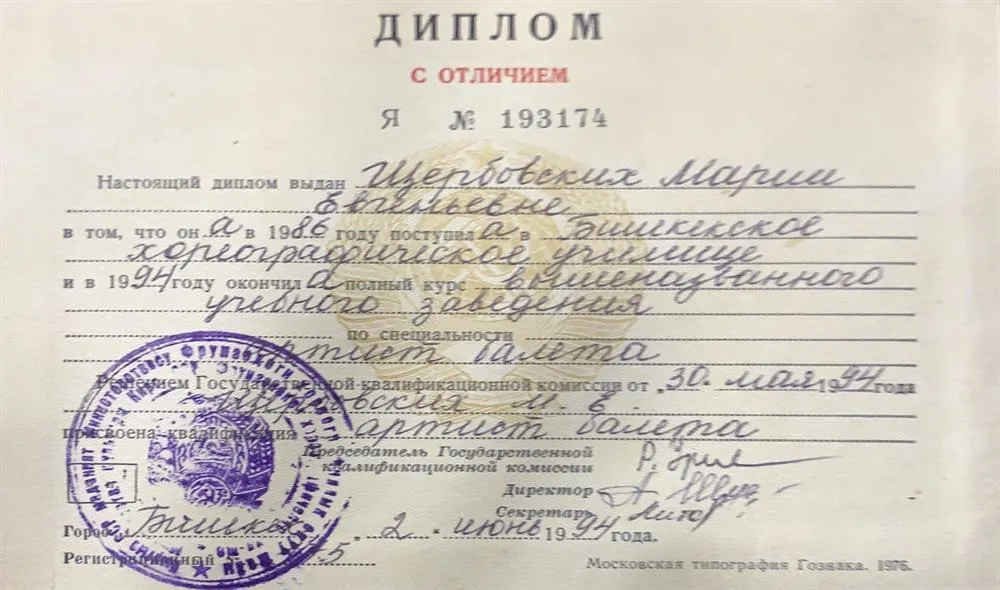 ДИПЛОМ
С ОТЛИЧИЕМ
Я № 193174
Настоящий диплом выдан Щербовских Марии
Евгеньевне
в том, что он а в 1986 году поступил а в Бишкекское
хореографическое училище
и в 1994 году окончил а полный курс вышеназванного
учебного заведения
по специальности
артист балета
Решением Государственной квалификационной комиссии от 30. мая 1994 года
Щербовских М. Е.
присвоена квалификация артист балета
Председатель Государственной
квалификационной комиссии
Директор
Секретарь
Город Бишкек 2 июнь 1994 года.
Регистрационный №
Московская типография Гознака. 1976.